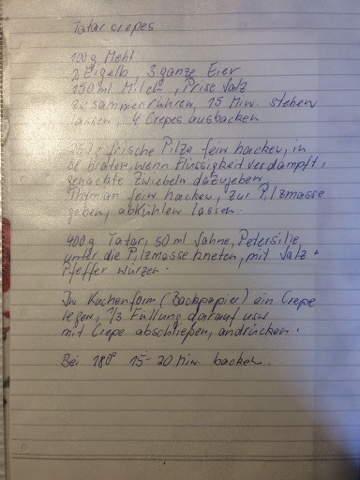 Tatar crepes
100 g Mehl
2 Eigelb, 3 ganze Eier
150 ml Milch, Prise Salz
zusammenrühren, 15 Min. stehen
lassen, 4 Crepes ausbacken
250 g frische Pilze fein hacken, in
Öl braten, wenn Flüssigkeit verdampft,
gehackte Zwiebeln dazugeben,
Thymian fein hacken, zur Pilzmasse
geben, abkühlen lassen.
400 g Tatar, 50 ml Sahne, Petersilie
unter die Pilzmasse kneten, mit Salz +
Pfeffer würzen.
In Kuchenform (Backpapier) ein Crepe
legen, 1/3 Füllung darauf usw.
mit Crepe abschließen, andrücken.
Bei 180° 15-20 Min backen.